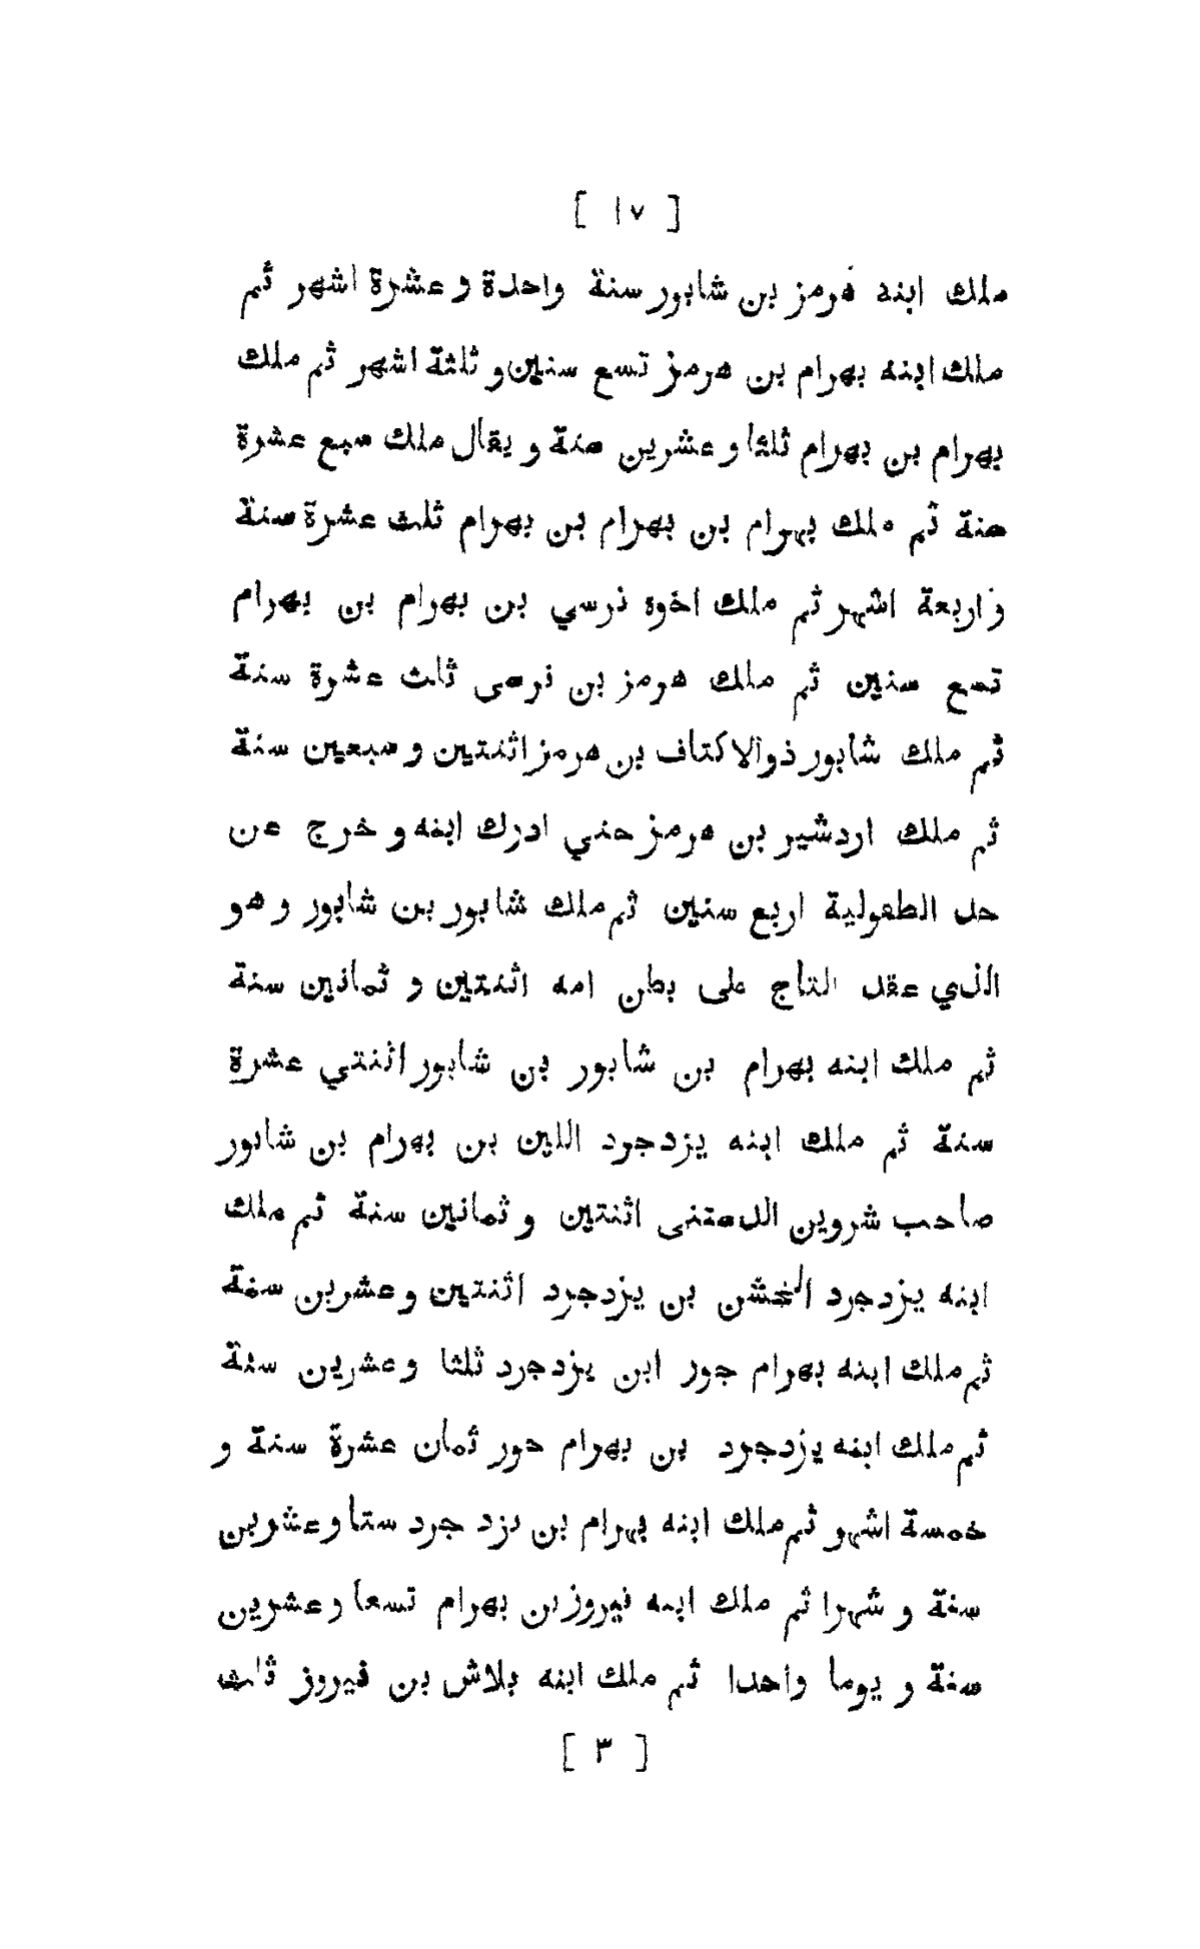 [ ١٧ ]
ملك ابنه هرمز بن شابور سنة واحدة و عشرة اشهر ثم
ملك ابنه بهرام بن هرمز تسع سنين و ثلثة اشهر ثم ملك
بهرام بن بهرام ثلثا و عشرين سنة و يقال ملك سبع عشرة
سنة ثم ملك بهرام بن بهرام بن بهرام ثلث عشرة سنة
و اربعة اشهر ثم ملك اخوه نرسي بن بهرام بن بهرام
تسع سنين ثم ملك هرمز بن نرسى ثلث عشرة سنة
ثم ملك شابور ذوالاكتاف بن هرمز اثنتين و سبعين سنة
ثم ملك اردشير بن هرمز حتي ادرك ابنه و خرج عن
حد الطفولية اربع سنين ثم ملك شابور بن شابور و هو
الذي عقد التاج على بطن امه اثنتين و ثمانين سنة
ثم ملك ابنه بهرام بن شابور بن شابور اثنتي عشرة
سنة ثم ملك ابنه يزدجرد اللين بن بهرام بن شابور
صاحب شروين الدستنى اثنتين و ثمانين سنة ثم ملك
ابنه يزدجرد الخشن بن يزدجرد اثنتين و عشرين سنة
ثم ملك ابنه بهرام جور ابن يزدجرد ثلثا و عشرين سنة
ثم ملك ابنه يزدجرد بن بهرام جور ثمان عشرة سنة و
خمسة اشهر ثم ملك ابنه بهرام بن يزد جرد ستا و عشرين
سنة و شهرا ثم ملك ابنه فيروز بن بهرام تسعا و عشرين
سنة و يوما واحدا ثم ملك ابنه بلاش بن فيروز ثلث
[ ٣ ]